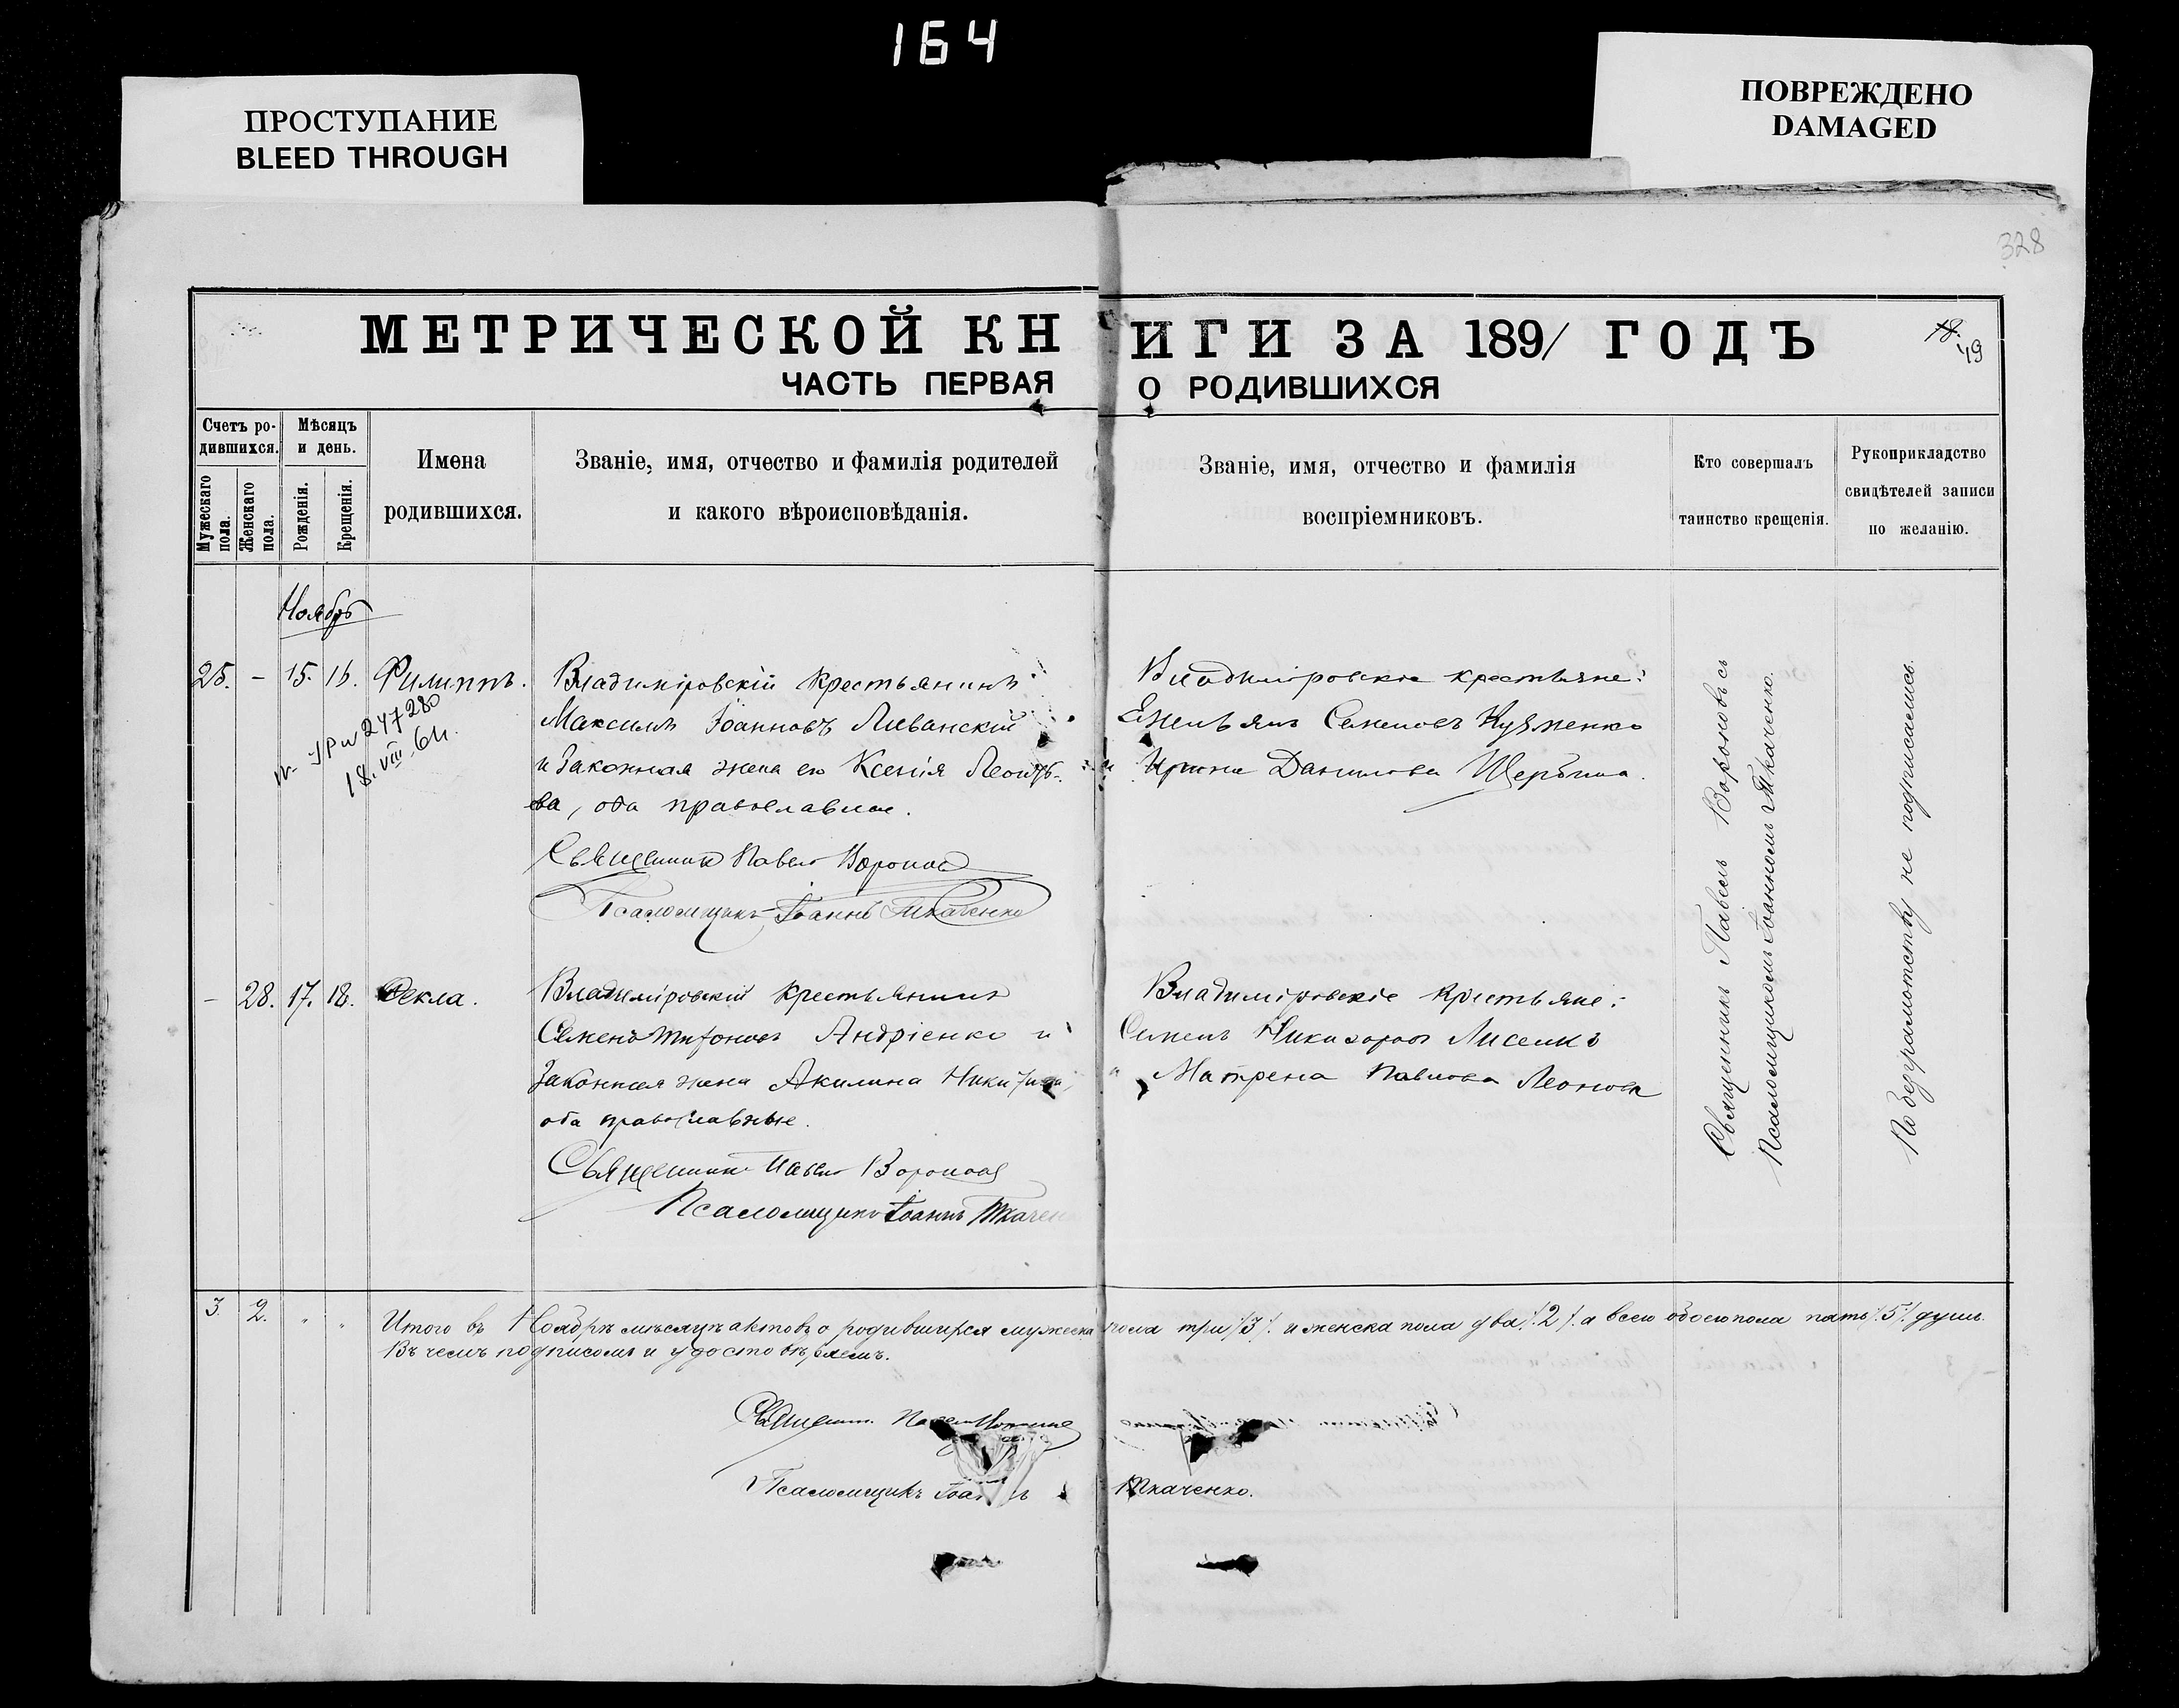 164
ПРОСТУПАНИЕ
BLEED THROUGH
ПОВРЕЖДЕНО
DAMAGED
328
МЕТРИЧЕСКОЙ КНИГИ ЗА 1891 ГОДЪ
18.
49
ЧАСТЬ ПЕРВАЯ О РОДИВШИХСЯ
Счетъ ро-
дившихся.
Мужескаго пола.
Женскаго пола.
Мѣсяцъ
и день.
Рожденія.
Крещенія.
Имена
родившихся.
Званіе, имя, отчество и фамилія родителей
и какого вѣроисповѣданія.
Званіе, имя, отчество и фамилія
воспріемниковъ.
Кто совершалъ
таинство крещенія.
Рукоприкладство
свидѣтелей записи
по желанію.
Ноябрь
25. - 15. 16. Филиппъ.
247280
18.VIII.64.
Владиміровскій крестьянинъ
Максимъ Іоанновъ Ливанскій
и законная жена его Ксенія Леонть-
ева, оба православные.
Священникъ Павелъ Вороновъ
Псаломщикъ Іоаннъ Ткаченко
Владиміровскіе крестьяне:
Емельянъ Семеновъ Кузменко
и Ирина Данилова Щербина.
- 28. 17. 18. Фекла.
Владиміровскій крестьянинъ
Семенъ Андріенко и
законная жена Акилина Никитина,
оба православные.
Священникъ Павелъ Вороновъ
Псаломщикъ Іоаннъ Ткаченко
Владиміровскіе крестьяне:
Семенъ Никифоровъ
и Матрена Павлова Леонова
Священникъ Павелъ Вороновъ съ
Псаломщикомъ Іоанномъ Ткаченко.
По безграмотству не подписались.
3. 2. " " Итого въ Ноябрѣ мѣсяцѣ актовъ о родившихся мужеска пола три /3/. и женска пола два /2/. а всего обоего пола пять /5/. душъ.
Въ чемъ подписомъ и удостовѣряемъ.
Священникъ Павелъ Вороновъ
Псаломщикъ Іоаннъ Ткаченко.